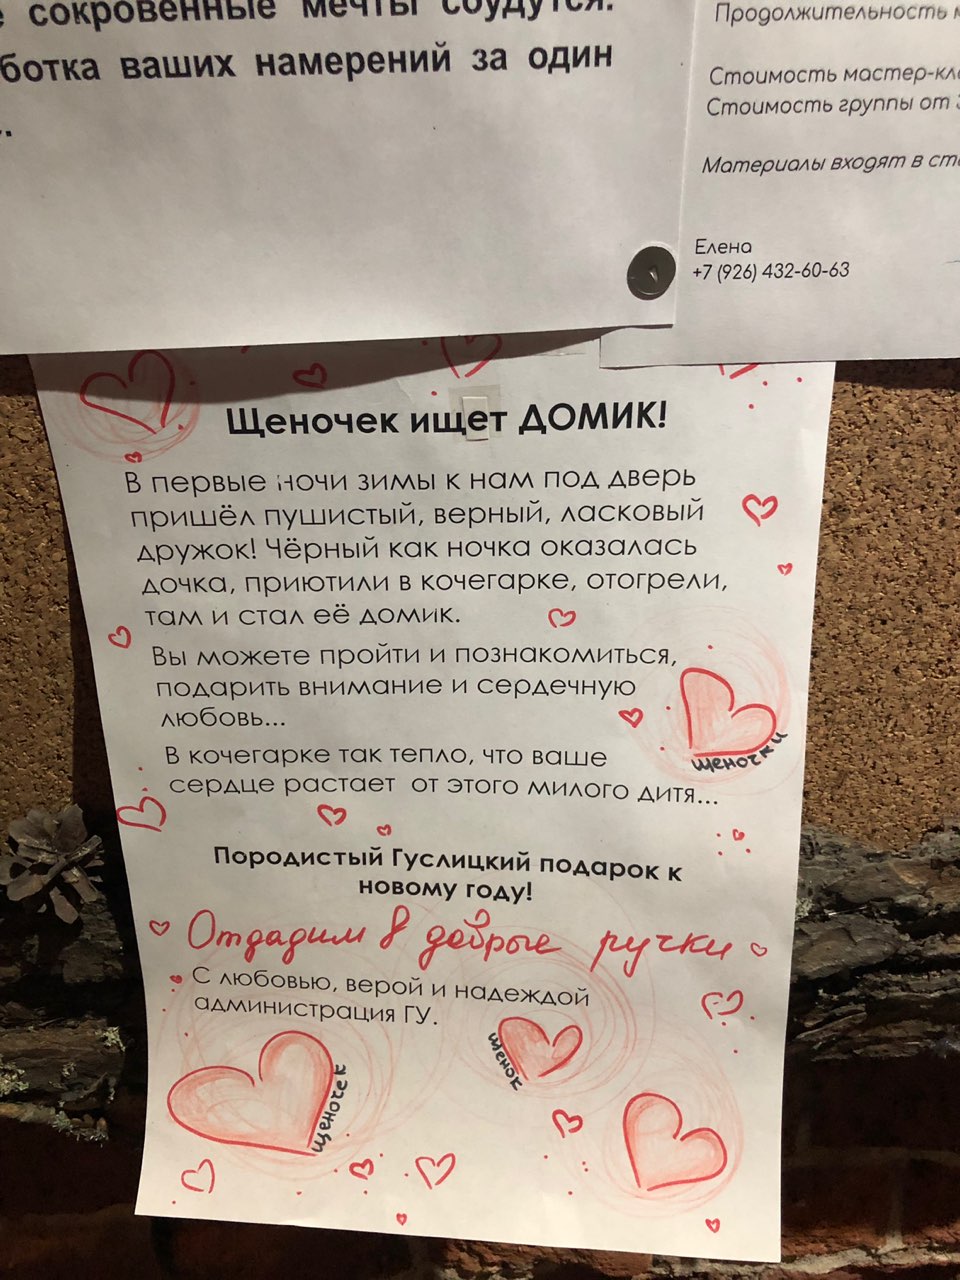 сокровенные мечты сбудутся.
ботка ваших намерений за один
Продолжительность
Стоимость мастер-кла
Стоимость группы от
Материалы входят в сто
Елена
+7 (926) 432-60-63
Щеночек ищет ДОМИК!
В первые ночи зимы к нам под дверь
пришёл пушистый, верный, ласковый
дружок! Чёрный как ночка оказалась
дочка, приютили в кочегарке, отогрели,
там и стал её домик.
Вы можете пройти и познакомиться,
подарить внимание и сердечную
любовь...
щеночки
В кочегарке так тепло, что ваше
сердце растает от этого милого дитя...
Породистый Гуслицкий подарок к
новому году!
Отдадим в добрые ручки
С любовью, верой и надеждой
администрация ГУ.
щеночек
щенок